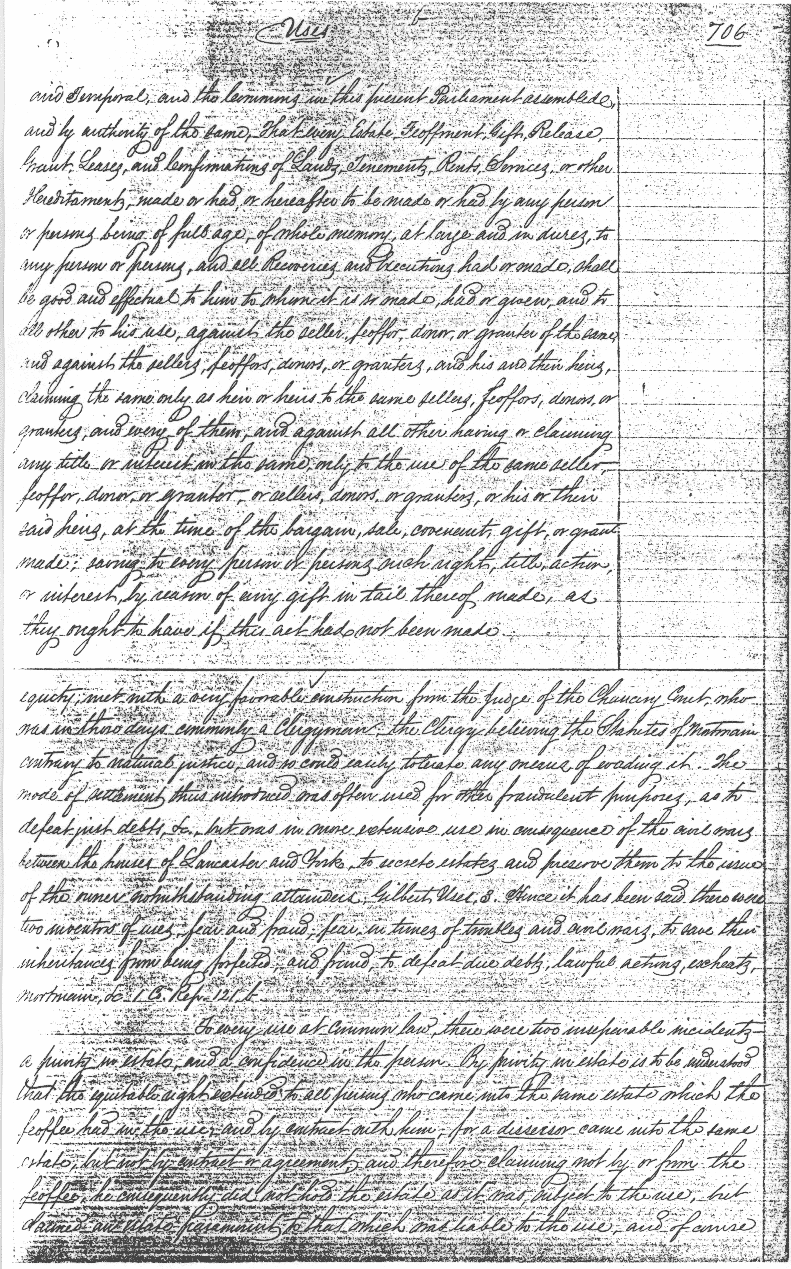 Uses
706
and Temporal, and the Commons in this present Parliament assembled,
and by authority of the same, That every Estate, Feoffment, Gift, Release,
Grant, Leases, and Confirmations of Lands, Tenements, Rents, Services, or other
Hereditaments, made or had, or hereafter to be made or had by any person
or persons being of full age, of whole memory, at large and in duress, to
any person or persons, and all Recoveries and Executions had or made, shall
be good and effectual to him to whom it is so made, had or given, and to
all other to his use, against the seller, feoffor, donor, or granter of the same
and against the sellers, feoffors, donors, or granters, and his and their heirs,
claiming the same only as heir or heirs to the same sellers, feoffors, donors, or
granters, and every of them, and against all other having or claiming
any title or interest in the same only to the use of the same seller,
feoffor, donor, or grantor, or sellers, donors, or granters, or his or their
said heirs, at the time of the bargain, sale, covenant, gift, or grant
made; saving to every person or persons such right, title, action,
or interest, by reason of any gift in tail thereof made, as
they ought to have if this act had not been made
equity; met with a very favorable construction from the Judge of the Chancery Court, who
was in those days commonly a Clergyman; the Clergy believing the Statutes of Mortmain
contrary to natural justice, and so could easily tolerate any means of evading it. The
mode of settlement thus introduced was often used for other fraudulent purposes, as to
defeat just debts, &c., but was in more extensive use in consequence of the civil wars
between the houses of Lancaster and York, to secrete estates and preserve them to the issue
of the owner notwithstanding attainders. Gilbert Uses, 3. Hence it has been said there were
two inventors of uses, fear and fraud; fear in times of troubles and civil wars, to save their
inheritances from being forfeited; and fraud, to defeat due debts, lawful actions, escheats,
mortmain, &c. 1 Co. Rep. 121, b.
To every use at common law, there were two inseparable incidents—
a privity in estate, and a confidence in the person. By privity in estate is to be understood
that the equitable right extended to all persons who came into the same estate which the
feoffee had in the use, and by contract with him; for a disseisor came into the same
estate, but not by contract or agreement, and therefore claiming not by or from the
feoffee, he consequently did not hold the estate as it was subject to the use, but
claimed an estate paramount to that which was liable to the use, and of course